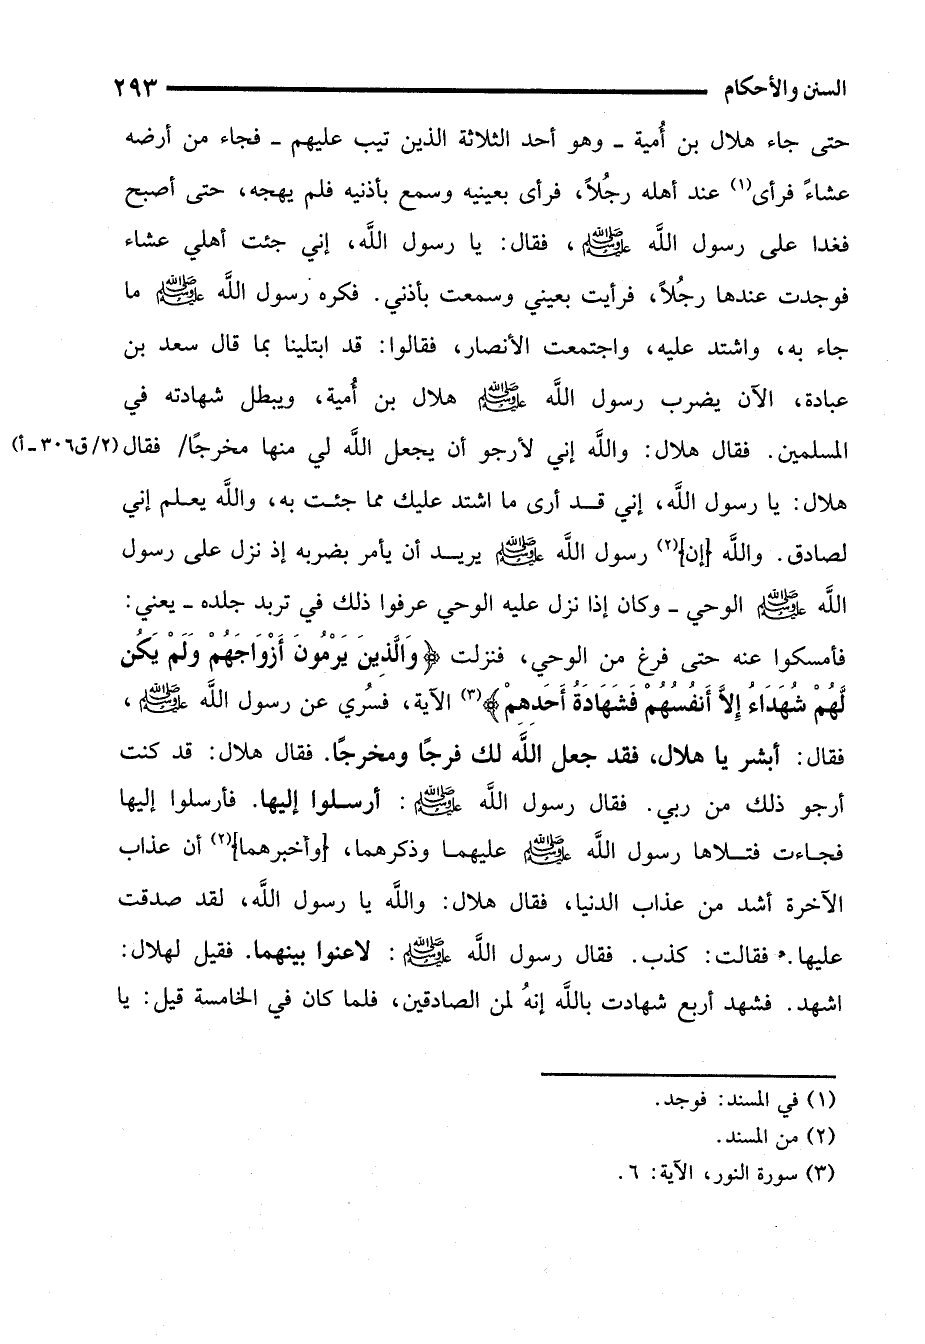 السنن والأحكام ٢٩٣
حتى جاء هلال بن أُمية ـ وهو أحد الثلاثة الذين تيب عليهم ـ فجاء من أرضه
عشاءً فرأى(١) عند أهله رجُلاً، فرأى بعينيه وسمع بأذنيه فلم يهجه، حتى أصبح
فغدا على رسول اللَّه ﷺ، فقال: يا رسول اللَّه، إني جئت أهلي عشاء
فوجدت عندها رجُلاً، فرأيت بعيني وسمعت بأذني. فكره رسول اللَّه ﷺ ما
جاء به، واشتد عليه، واجتمعت الأنصار، فقالوا: قد ابتلينا بما قال سعد بن
عبادة، الآن يضرب رسول اللَّه ﷺ هلال بن أُمية، ويبطل شهادته في
المسلمين. فقال هلال: واللَّه إني لأرجو أن يجعل اللَّه لي منها مخرجًا/ فقال (٢/ق٣٠٦ـ أ)
هلال: يا رسول اللَّه، إني قد أرى ما اشتد عليك مما جئت به، واللَّه يعلم إني
لصادق. واللَّه {إن}(٢) رسول اللَّه ﷺ يريد أن يأمر بضربه إذ نزل على رسول
اللَّه ﷺ الوحي ـ وكان إذا نزل عليه الوحي عرفوا ذلك في تربد جلده ـ يعني:
فأمسكوا عنه حتى فرغ من الوحي، فنزلت ﴿وَالَّذِينَ يَرْمُونَ أَزْوَاجَهُمْ وَلَمْ يَكُن
لَّهُمْ شُهَدَاءُ إِلاَّ أَنفُسُهُمْ فَشَهَادَةُ أَحَدِهِمْ﴾(٣) الآية، فسُري عن رسول اللَّه ﷺ،
فقال: أبشر يا هلال، فقد جعل اللَّه لك فرجًا ومخرجًا. فقال هلال: قد كنت
أرجو ذلك من ربي. فقال رسول اللَّه ﷺ: أرسلوا إليها. فأرسلوا إليها
فجاءت فتلاها رسول اللَّه ﷺ عليهما وذكرهما، {وأخبرهما}(٢) أن عذاب
الآخرة أشد من عذاب الدنيا، فقال هلال: واللَّه يا رسول اللَّه، لقد صدقت
عليها. فقالت: كذب. فقال رسول اللَّه ﷺ: لاعنوا بينهما. فقيل لهلال:
اشهد. فشهد أربع شهادت باللَّه إنهُ لمن الصادقين، فلما كان في الخامسة قيل: يا
(١) في المسند: فوجد.
(٢) من المسند.
(٣) سورة النور، الآية: ٦.